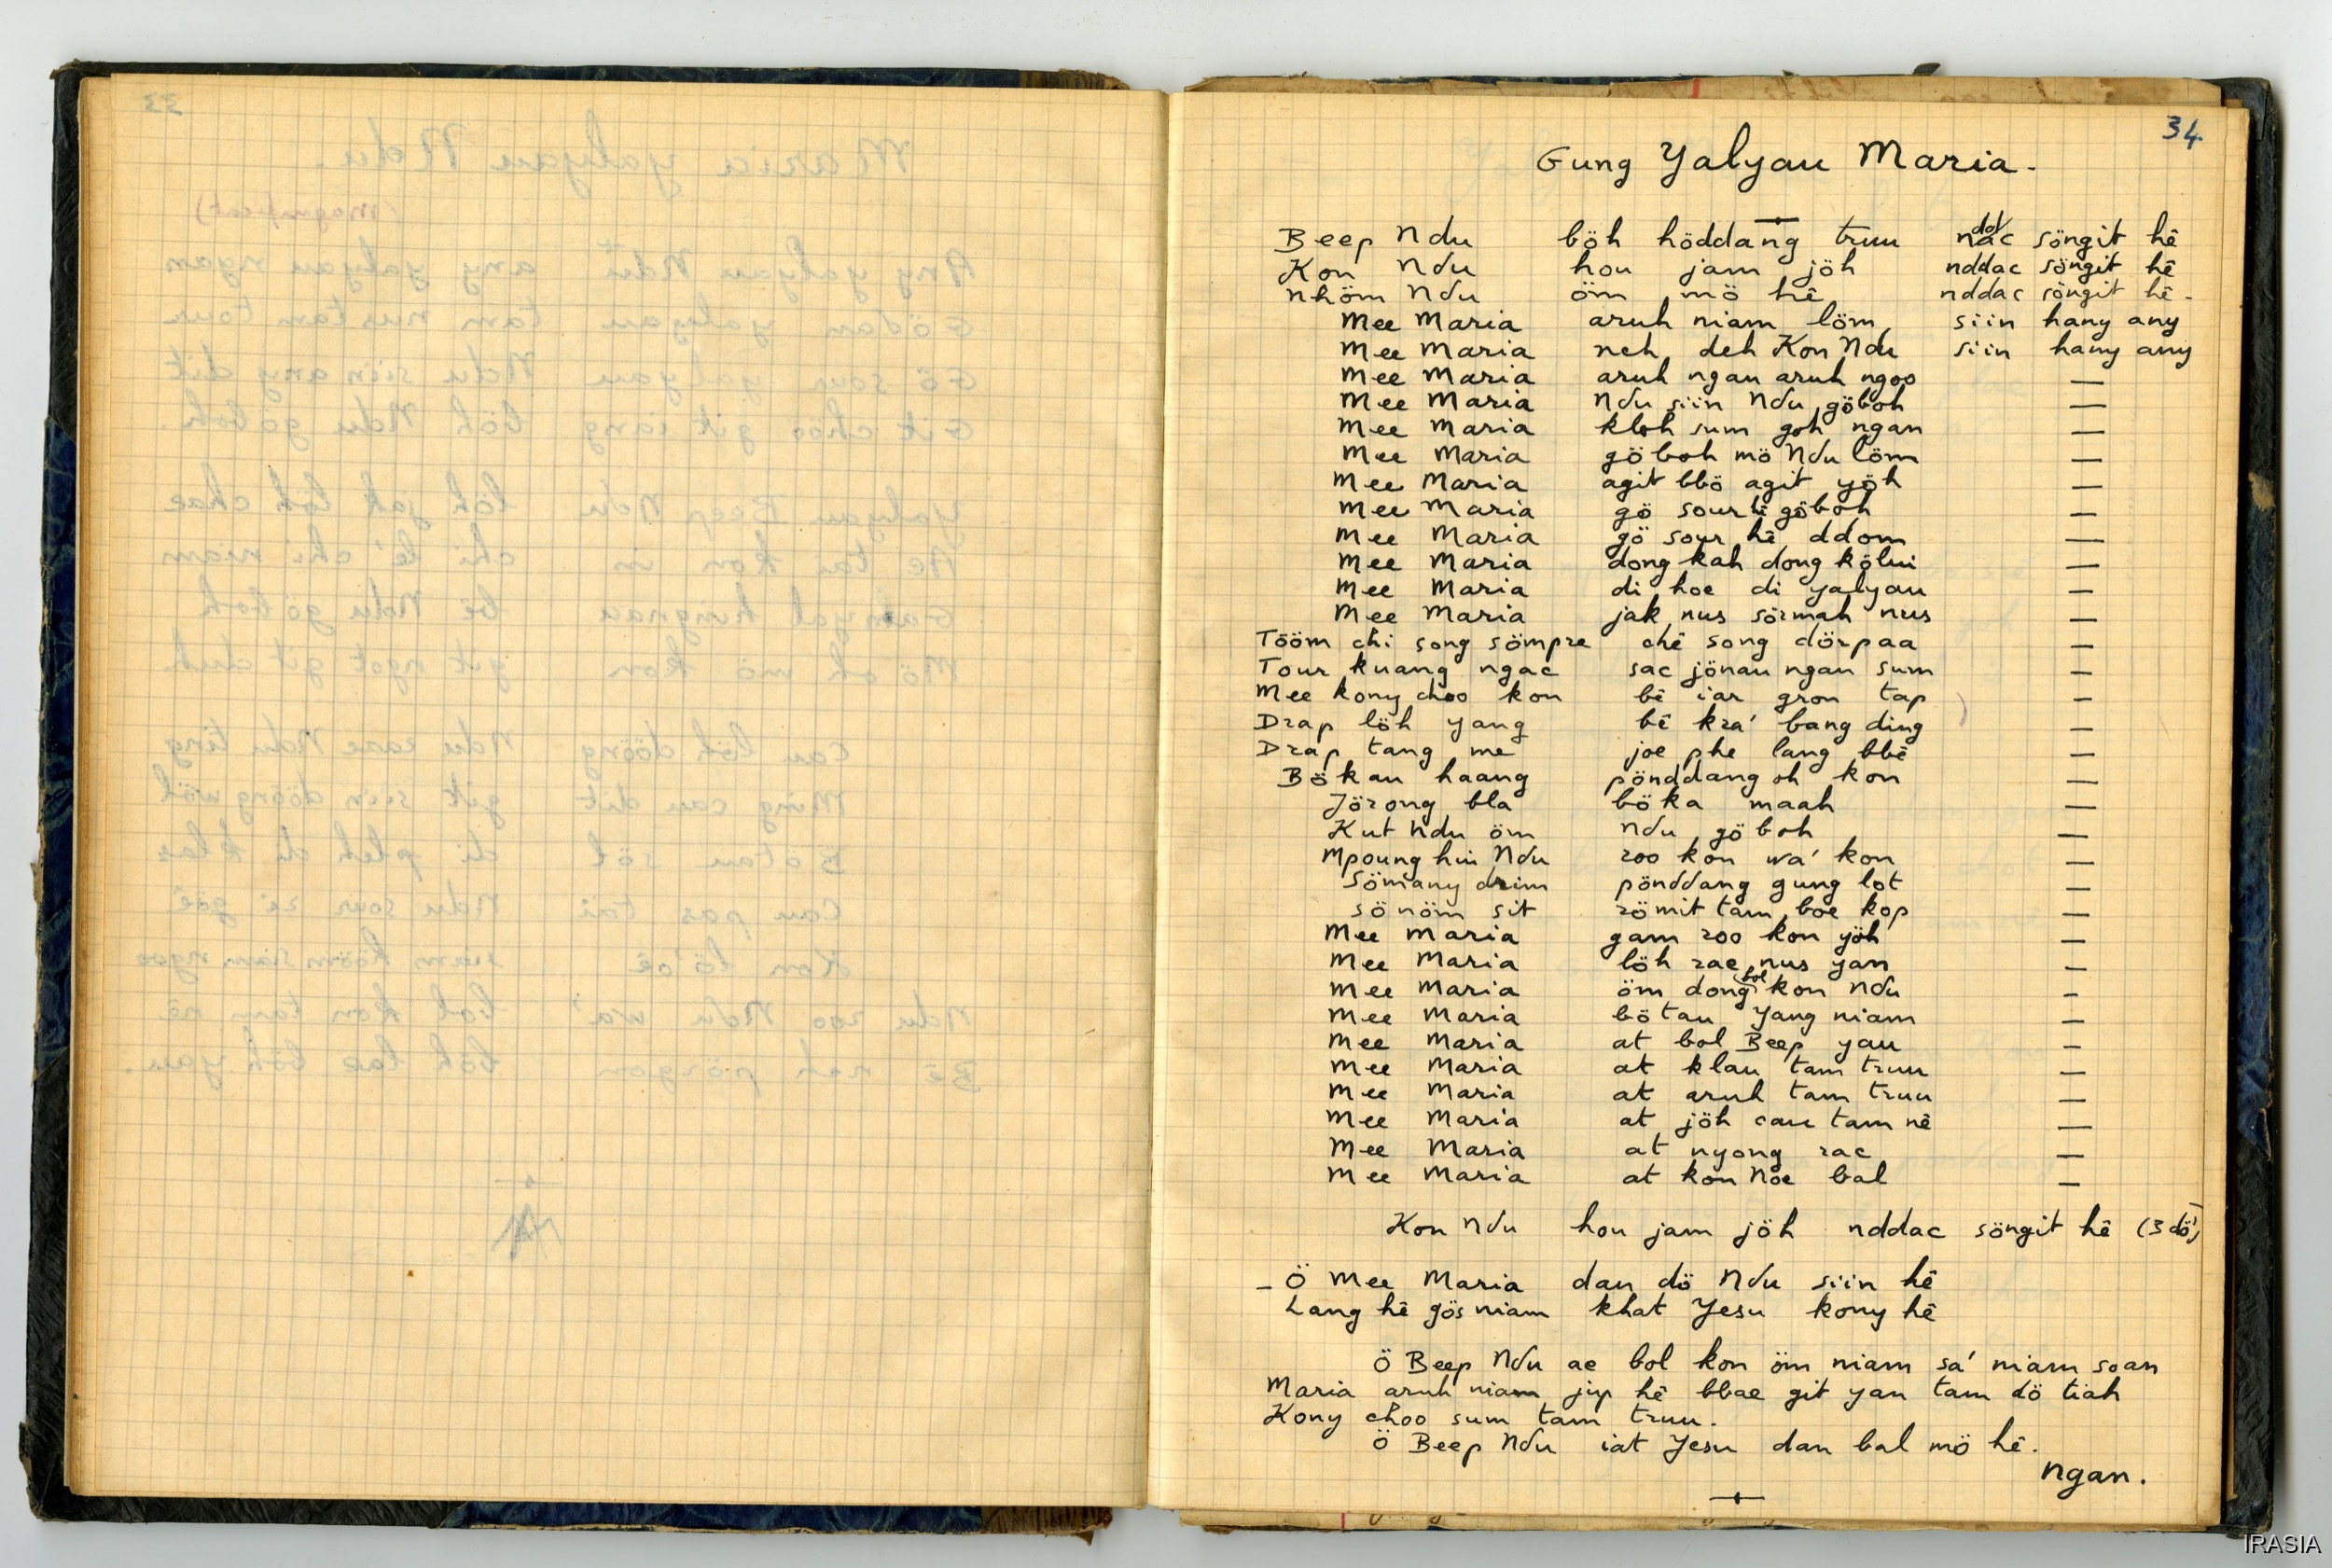 34
Gung Yalyau Maria.
Beep Ndu böh höddang truu nddac söngit hê
Kon Ndu hou jam jöh nddac söngit hê
nhöm Ndu öm mö hê nddac söngit hê.
Mee Maria aruh niam löm siin hany any
Mee Maria neh deh Kon Ndu siin hany any
Mee Maria aruh ngan aruh ngoo —
Mee Maria Ndu siin Ndu göboh —
Mee Maria kloh sum goh ngan —
Mee Maria göboh mö Ndu löm —
Mee Maria agit bbö agit yöh —
Mee Maria gö sour hê göboh —
Mee Maria gö sour hê ddom —
Mee Maria dong kah dong kölui —
Mee Maria di hoe di yalyau —
Mee Maria jak nus sörmah nus —
Tööm chi song sömpre chê song dörpaa —
Tour kuang ngac sac jönau ngan sum —
Mee kony choo kon bê iar gron tap —
Drap löh yang bê kra' bang ding —
Drap tang me joe phe lang bbê —
Bökau haang pönddang oh kon —
Jörong bla böka maah —
Kut Ndu öm Ndu göboh —
Mpoung hiu Ndu roo kon wa' kon —
Sömany drim pönddang gung lot —
sönöm sit römit tam boe kop —
Mee Maria gam roo kon yöh —
Mee Maria löh rae nus yan —
Mee Maria öm dong bol kon Ndu —
Mee Maria bötau yang niam —
Mee Maria at bol Beep yau —
Mee Maria at klau tam truu —
Mee Maria at aruh tam truu —
Mee Maria at jöh cau tam nê —
Mee Maria at nyong rac —
Mee Maria at kon Nöe bal —
Kon Ndu hou jam jöh nddac söngit hê (3 dö)
– Ö Mee Maria dan dö Ndu siin hê
Lang hê gös niam khat Yesu kony hê
Ö Beep Ndu ae bol kon öm niam sa' niam soan
Maria aruh niam jip hê bbae git yan tam dö tiah
Kony choo sum tam truu.
Ö Beep Ndu iat Yesu dan bal mö hê.
ngan.
IRASIA